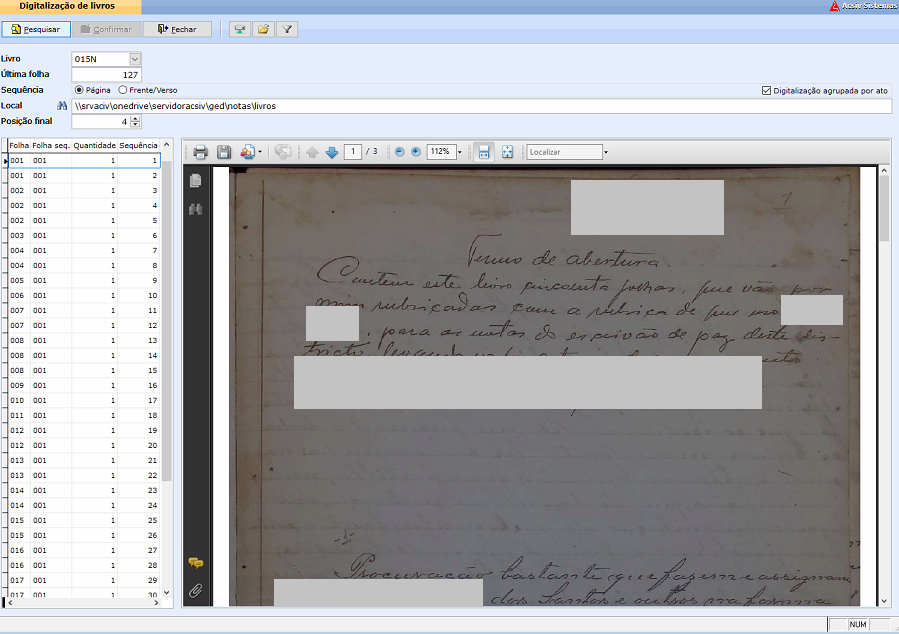 Digitalização de livros
Acsiv Sistemas
Pesquisar
Confirmar
Fechar
Livro
015N
Última folha
127
Sequência
Página
Frente/Verso
Digitalização agrupada por ato
Local
\\srvaciv\onedrive\servidoracsiv\ged\notas\livros
Posição final
4
Folha Folha seq. Quantidade Sequência
001 001 1 1
001 001 1 2
002 001 1 3
002 001 1 4
002 001 1 5
003 001 1 6
004 001 1 7
004 001 1 8
005 001 1 9
006 001 1 10
007 001 1 11
007 001 1 12
008 001 1 13
008 001 1 14
008 001 1 15
009 001 1 16
010 001 1 17
011 001 1 18
012 001 1 19
012 001 1 20
013 001 1 21
013 001 1 22
014 001 1 23
014 001 1 24
015 001 1 25
015 001 1 26
016 001 1 27
016 001 1 28
017 001 1 29
017 001 1 30
1 / 3
112%
Localizar
1
Termo de abertura.
Contem este livro cincoenta folhas, que vão por
mim rubricadas com a rubrica de que uso
, para as notas do escrivão de paz deste dis-
tricto, levando
Procuração bastante que fazem e assignam
dos Santos e outros na forma
NUM